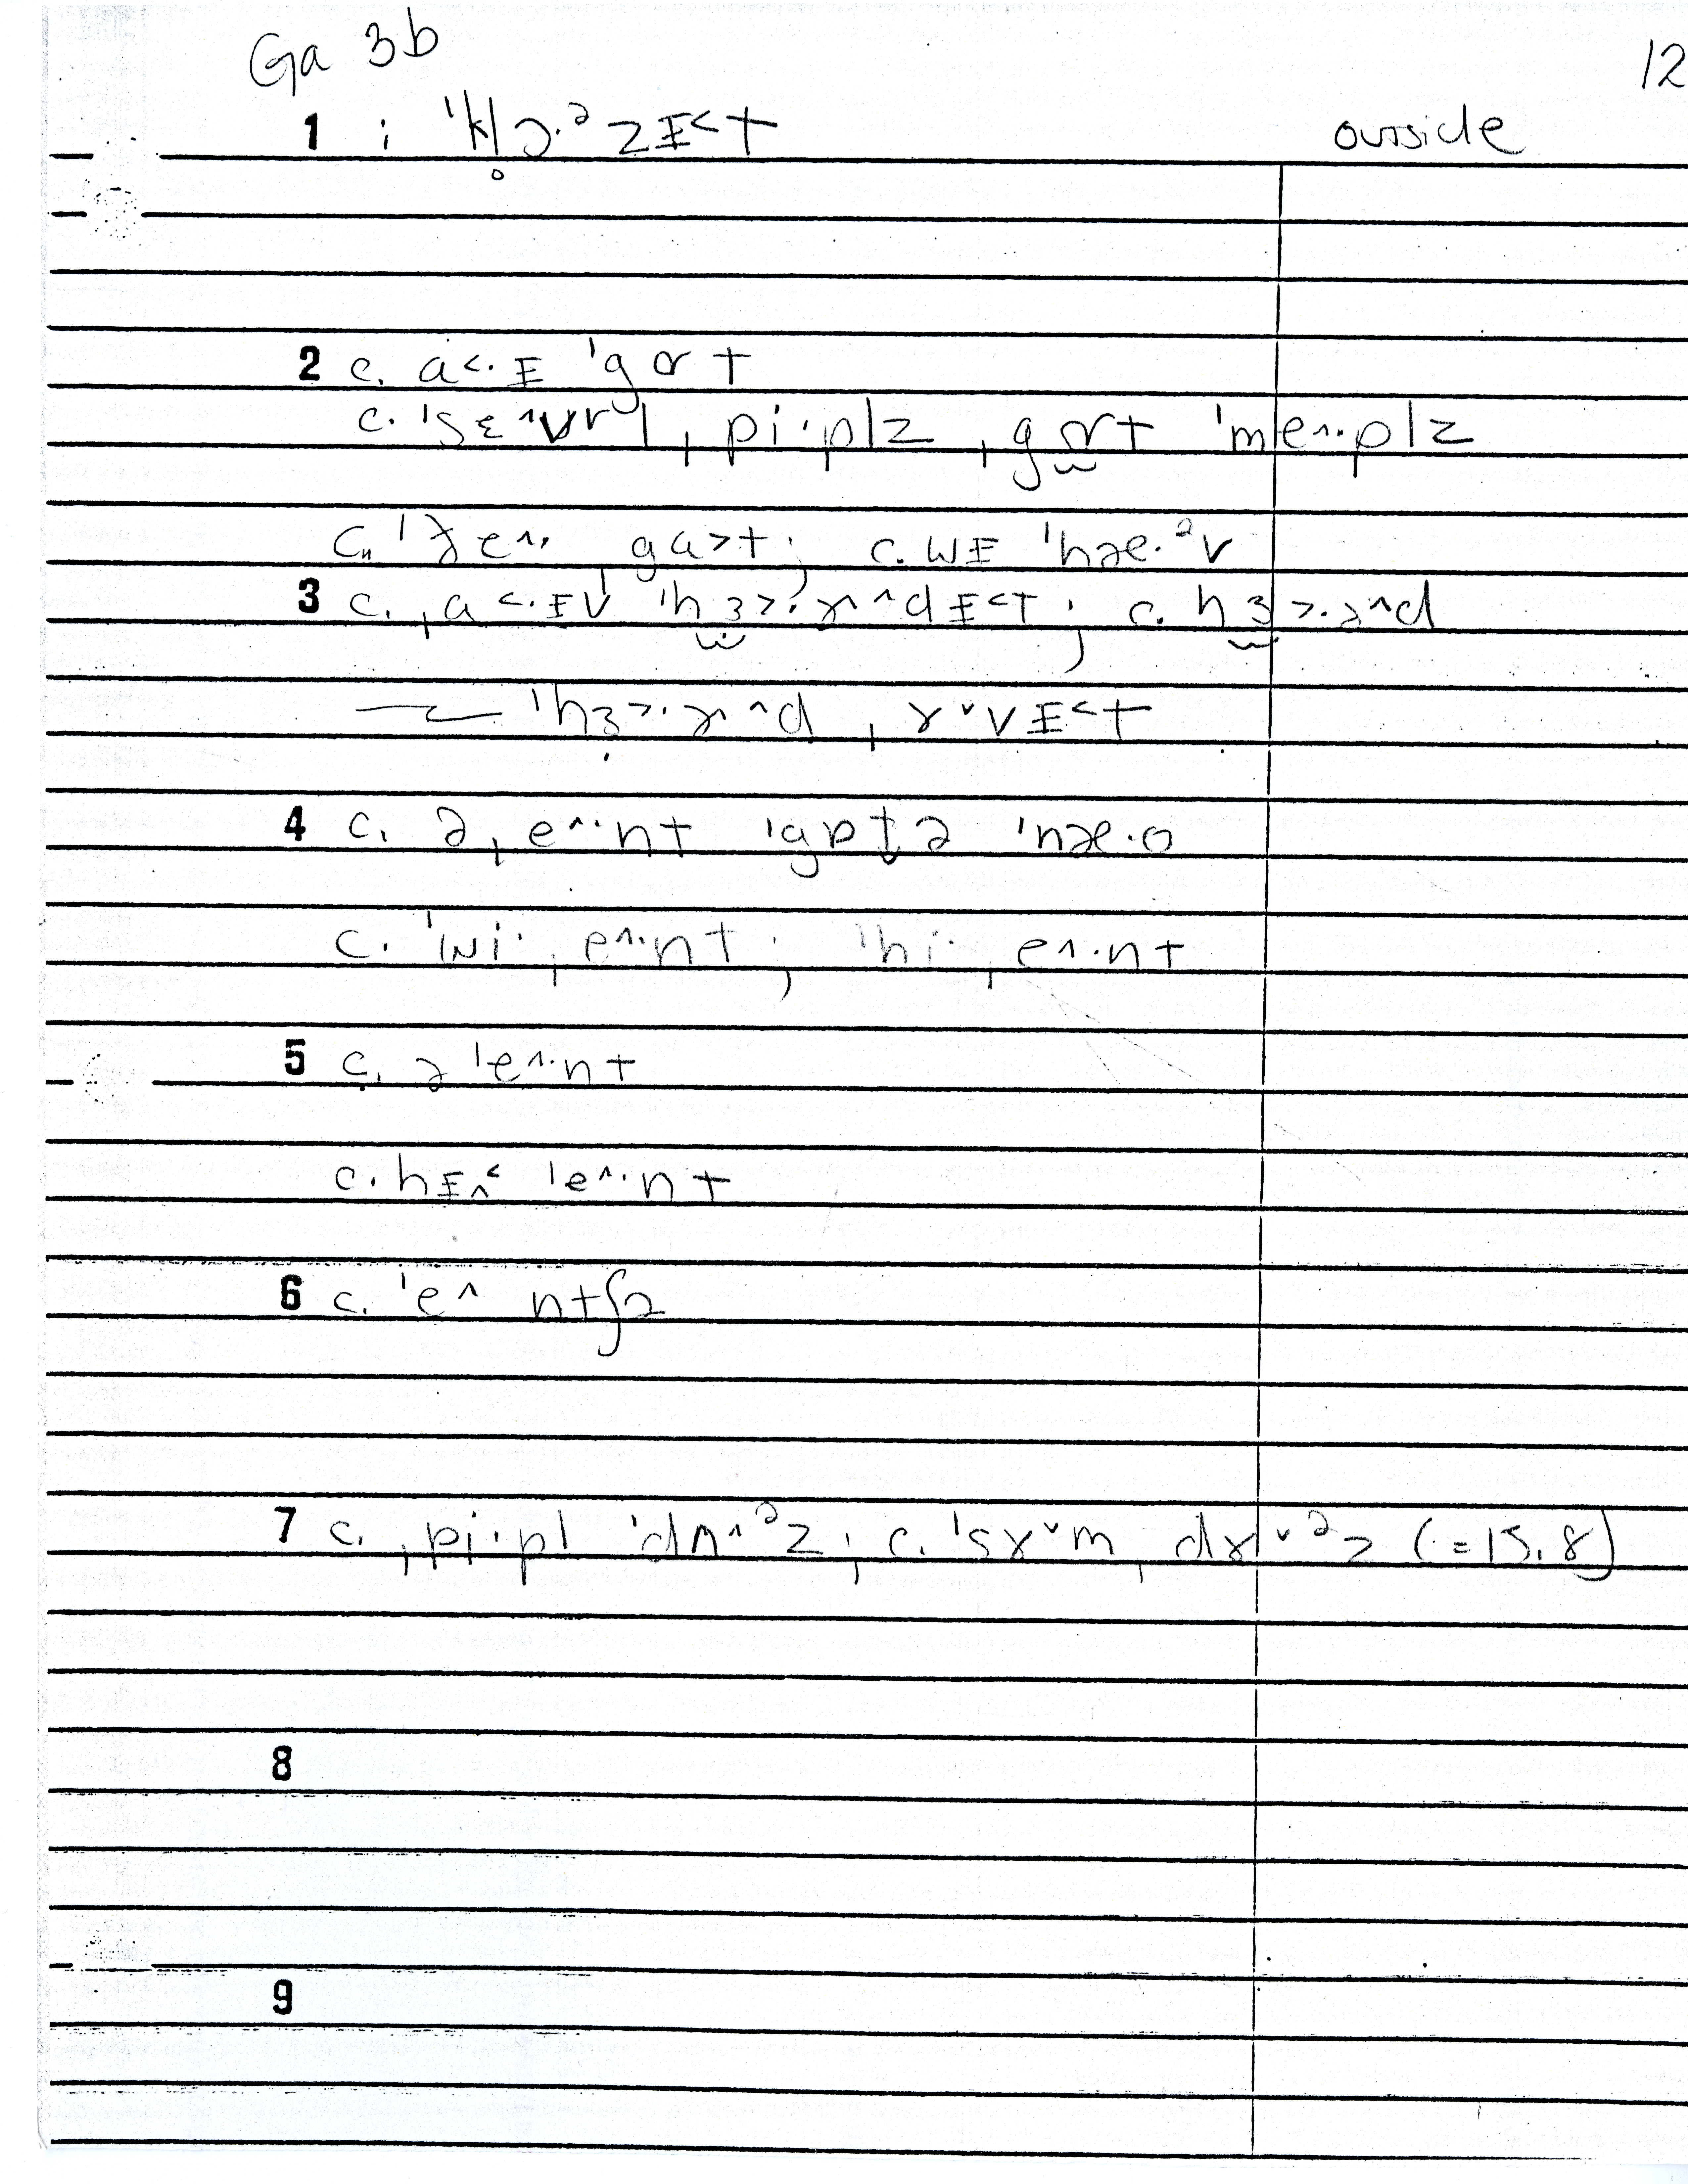 Ga 3b 12
1 i ˈkl̥ɔ·ᵊzɪ˂t outside
2 c. a˂·ɪ ˈgɒt
c. ˈsɛ^vr l ˌpi·plz ˌgɒt ˈme^·plz
ga˃t; c. wɪ ˈhæ·ᵊv
3 c. ˌa˂·ɪv ˈhɜ˃·ɤ^dɪ˂t; c. hɜ˃·ɤ^d
ˈhɜ˃·ɤ^d ˌɤˇvɪ˂t
4 c. ə ˌe^·nt ˈgɒtə ˈnæ·o
c. ˈwi· ˌe^·nt; ˈhi· ˌe^·nt
5 c. ə ˈe^·nt
c. hɪ^˂ ˈe^·nt
6 c. ˈe^ ntʃə
7 c. ˌpi·pl ˈdʌ^ᵊz; c. ˈsɤˇm ˌdɤˇᵊz (=15.8)
8
9